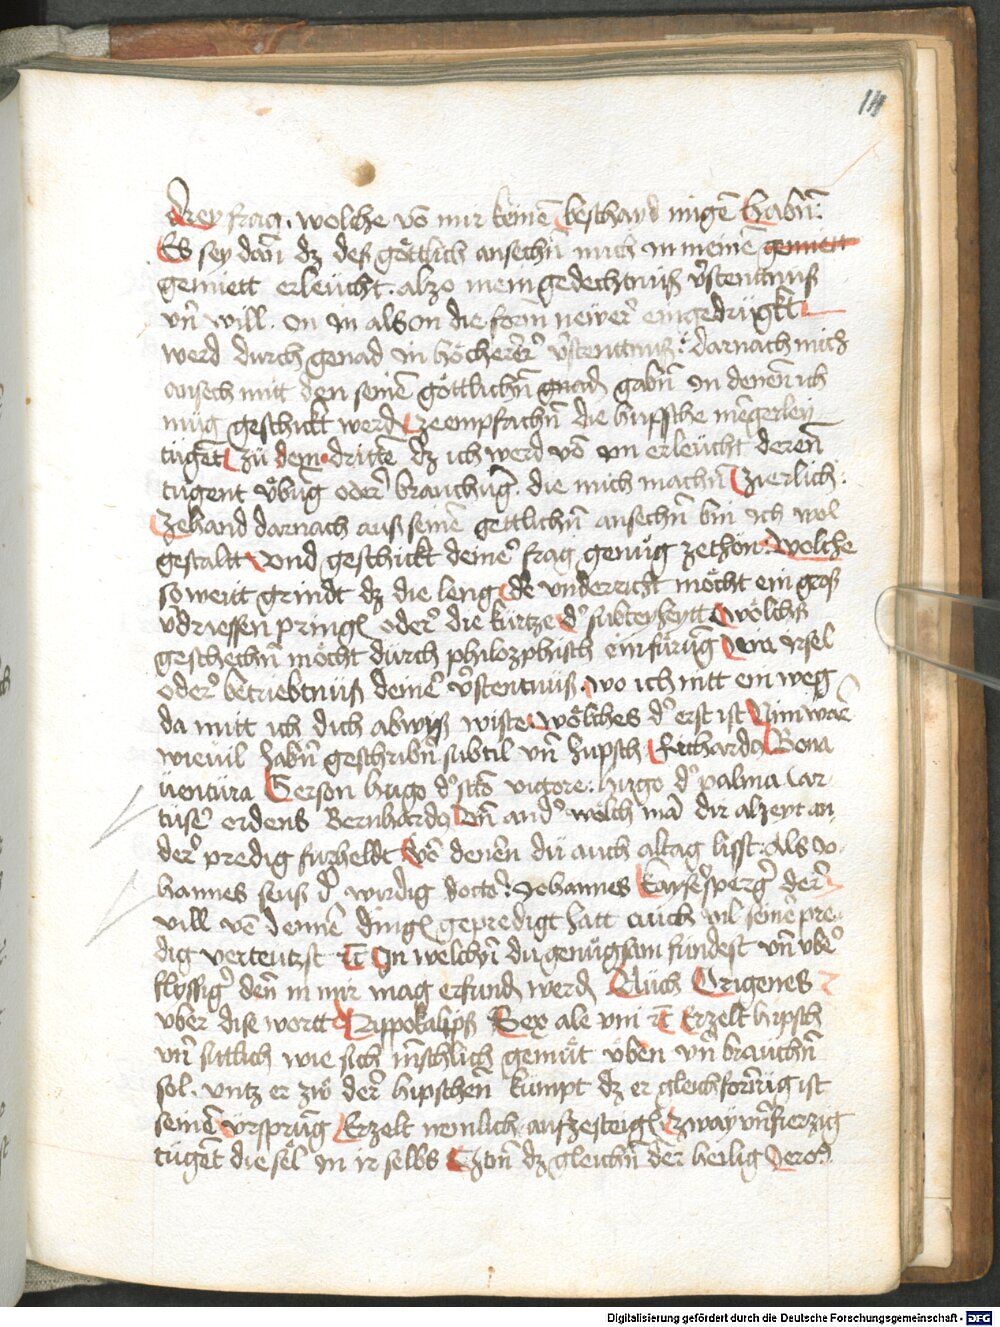 14
drey frag. welche vō mir keinē beschayd migē habn̄.
Es sey dan̄ dz des gŏttlich ansechn̄ mich in meinē gemiett
gemiett erleücht. alzo mein gedechtnuß v̄stentnuß
vn̄ will. In in als in die form newer̄ eingedrügkt
werd durch genad in hŏcherer̄ v̄stentnuß. darnach mich
ansech mitt den seinē gŏttlichn̄ gnad gabn̄ in denen ich
müg geschickt werd zeempfachn̄ die hupsche mēgerley
tügēt zü dem dritten dz ich werd vō im erleücht deren̄
tugent v̆būg oder̄ brauchūg. die mich machn̄ zierlich.
Zehand darnach auß seinē gettlichn̄ ansechn̄ bin ich wol
gestaltt vnd geschickt deiner̄ frag genŭg zethŏn. welche
so weitt grindt dz die leng de vnderricht mŏcht ein groß
v̄driessen pringē oder̄ die kürtze d' subteyheytt wŏlchß
geschechn̄ mŏcht durch philozphisch einfürūg vrsel
oder̄ betriebtnuß deinē v̄stentnuß. wo ich nitt ein weg
da mitt ich dich abwiß wiste. wŏlches d' erst ist Nim war
wieuil habn̄ geschribn̄ subtil vn̄ hupsch Richardq Bona
üentüra Gerson hugo d' sctō vigore: hugo d' palma Car
tüser̄ ordens Bernhardq vn̄ and' wŏlch mā dir alzeyt an
der̄ predig furheldt Vŏ denen dü auch altag lisst. Als Jo
hannes seuß d' wirdig docto'. Johannes Kayser̄sperg' der̄
vill vō dennē dingē gepredigt hatt auch vil seinē pre
dig verteutzst ⁊c̄ In welchn̄ du genŭgsam fundest vn̄ vber̄
flyssig' den̄ in mir mag erfundn̄ werdn̄ Auch Origenes
vber dise wortt Appokalipß Sex ale vni ⁊c̄ Erzelt hipsch
vn̄ sittlich wie sich mēschlich gemŭt ŏben vn̄ brauchn̄
sol. vntz er zü der̄ hipschen̄ kumpt dz er gleichformig ist
seinē v̈rsprūg Erzelt nemlich aufzesteigē zway vn̄ fierzig
tügēt die sel in ir selbs dz gleichn̄ der̄ heilig Jero'.
Digitalisierung gefördert durch die Deutsche Forschungsgemeinschaft - DFG